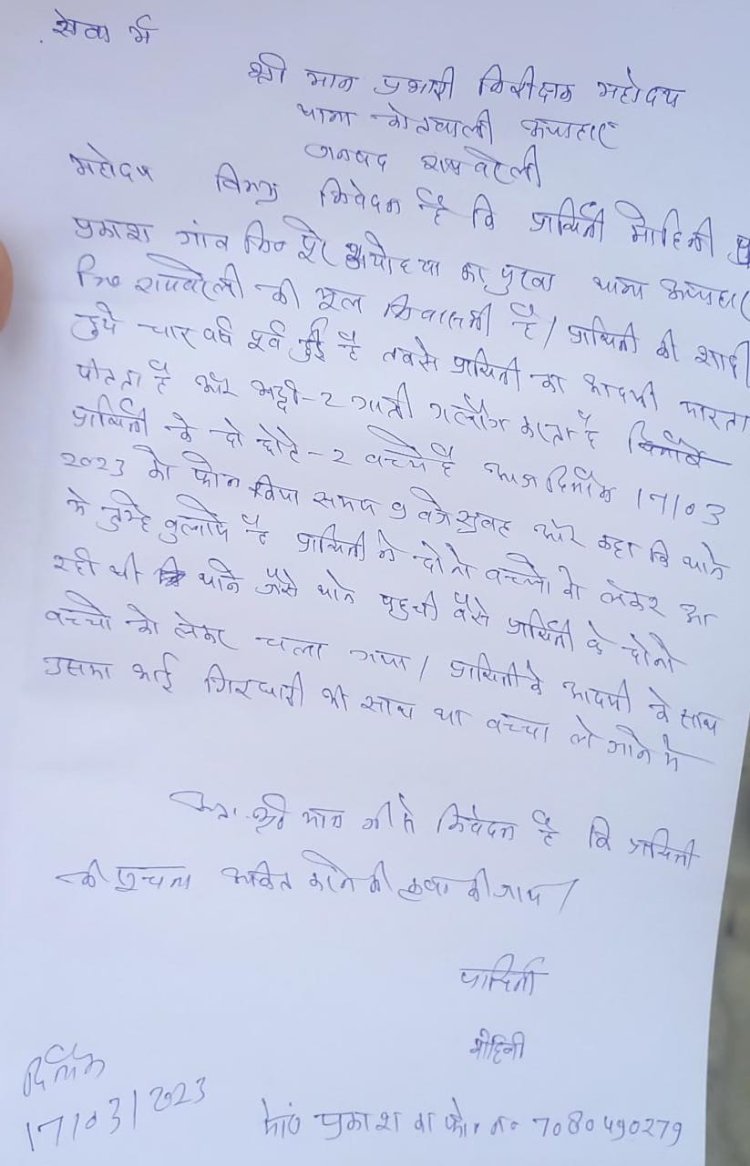 सेवा में
श्री मान प्रभारी निरीक्षक महोदय
थाना कोतवाली ऊंचाहार
जनपद रायबरेली
महोदय विनम्र निवेदन है कि प्रार्थिनी मोहिनी
प्रकाश गांव पूरे अयोध्या का पुरवा थाना ऊंचाहार
जि० रायबरेली की मूल निवासनी है / प्रार्थिनी की शादी
हुये चार वर्ष पूर्व हुई है तबसे प्रार्थिनी का आदमी मारता
पीटता है और भद्दी-2 गाली गलौग करता है
प्रार्थिनी के दो छोटे-2 बच्चे है आज दिनाँक 17/03
2023 को फोन किया समय 9 बजे सुबह और कहा कि थाने
मे तुम्हे बुलाये है प्रार्थिनी ने दोनो बच्चो को लेकर आ
रही थी थाने जैसे थाने पहुची वैसे प्रार्थिनी के दोनो
बच्चो को लेकर चला गया / प्रार्थिनी के आदमी के साथ
उसका भाई गिरधारी भी साथ था बच्चा ले जाने मे
अतः श्री मान जी से निवेदन है कि प्रार्थिनी
की सूचना अंकित करने की कृपा की जाय /
प्रार्थिनी
मोहिनी
दिनाँक
17/03/2023
प्रकाश फो. न० 7080490279